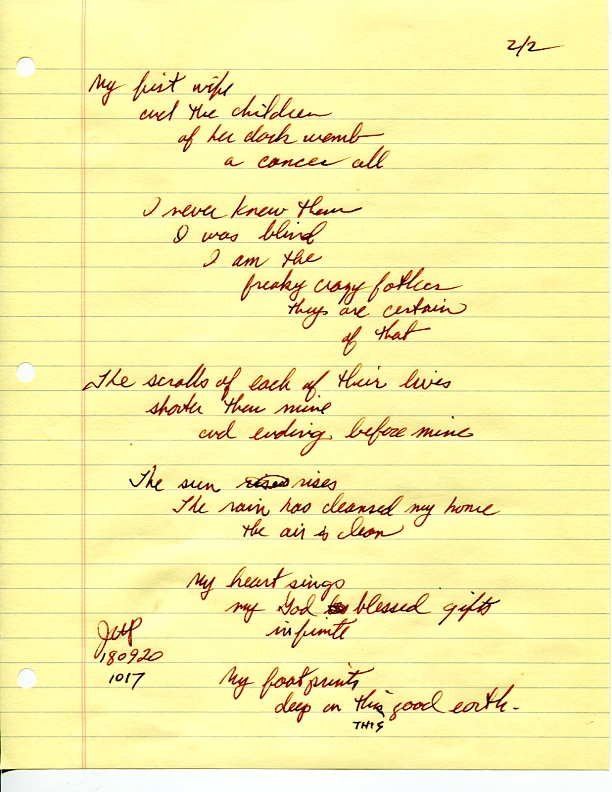 2/2
My first wife
and the children
of her dark womb
a cancer all
I never knew them
I was blind
I am the
freaky crazy father
they are certain
of that
The scrolls of each of their lives
shorter than mine
and ending before mine
The sun rises rises
The rain has cleansed my home
the air is clean
My heart sings
my God blessed gifts
infinite
180920
1017
My footprints
deep on this good earth.
THIS